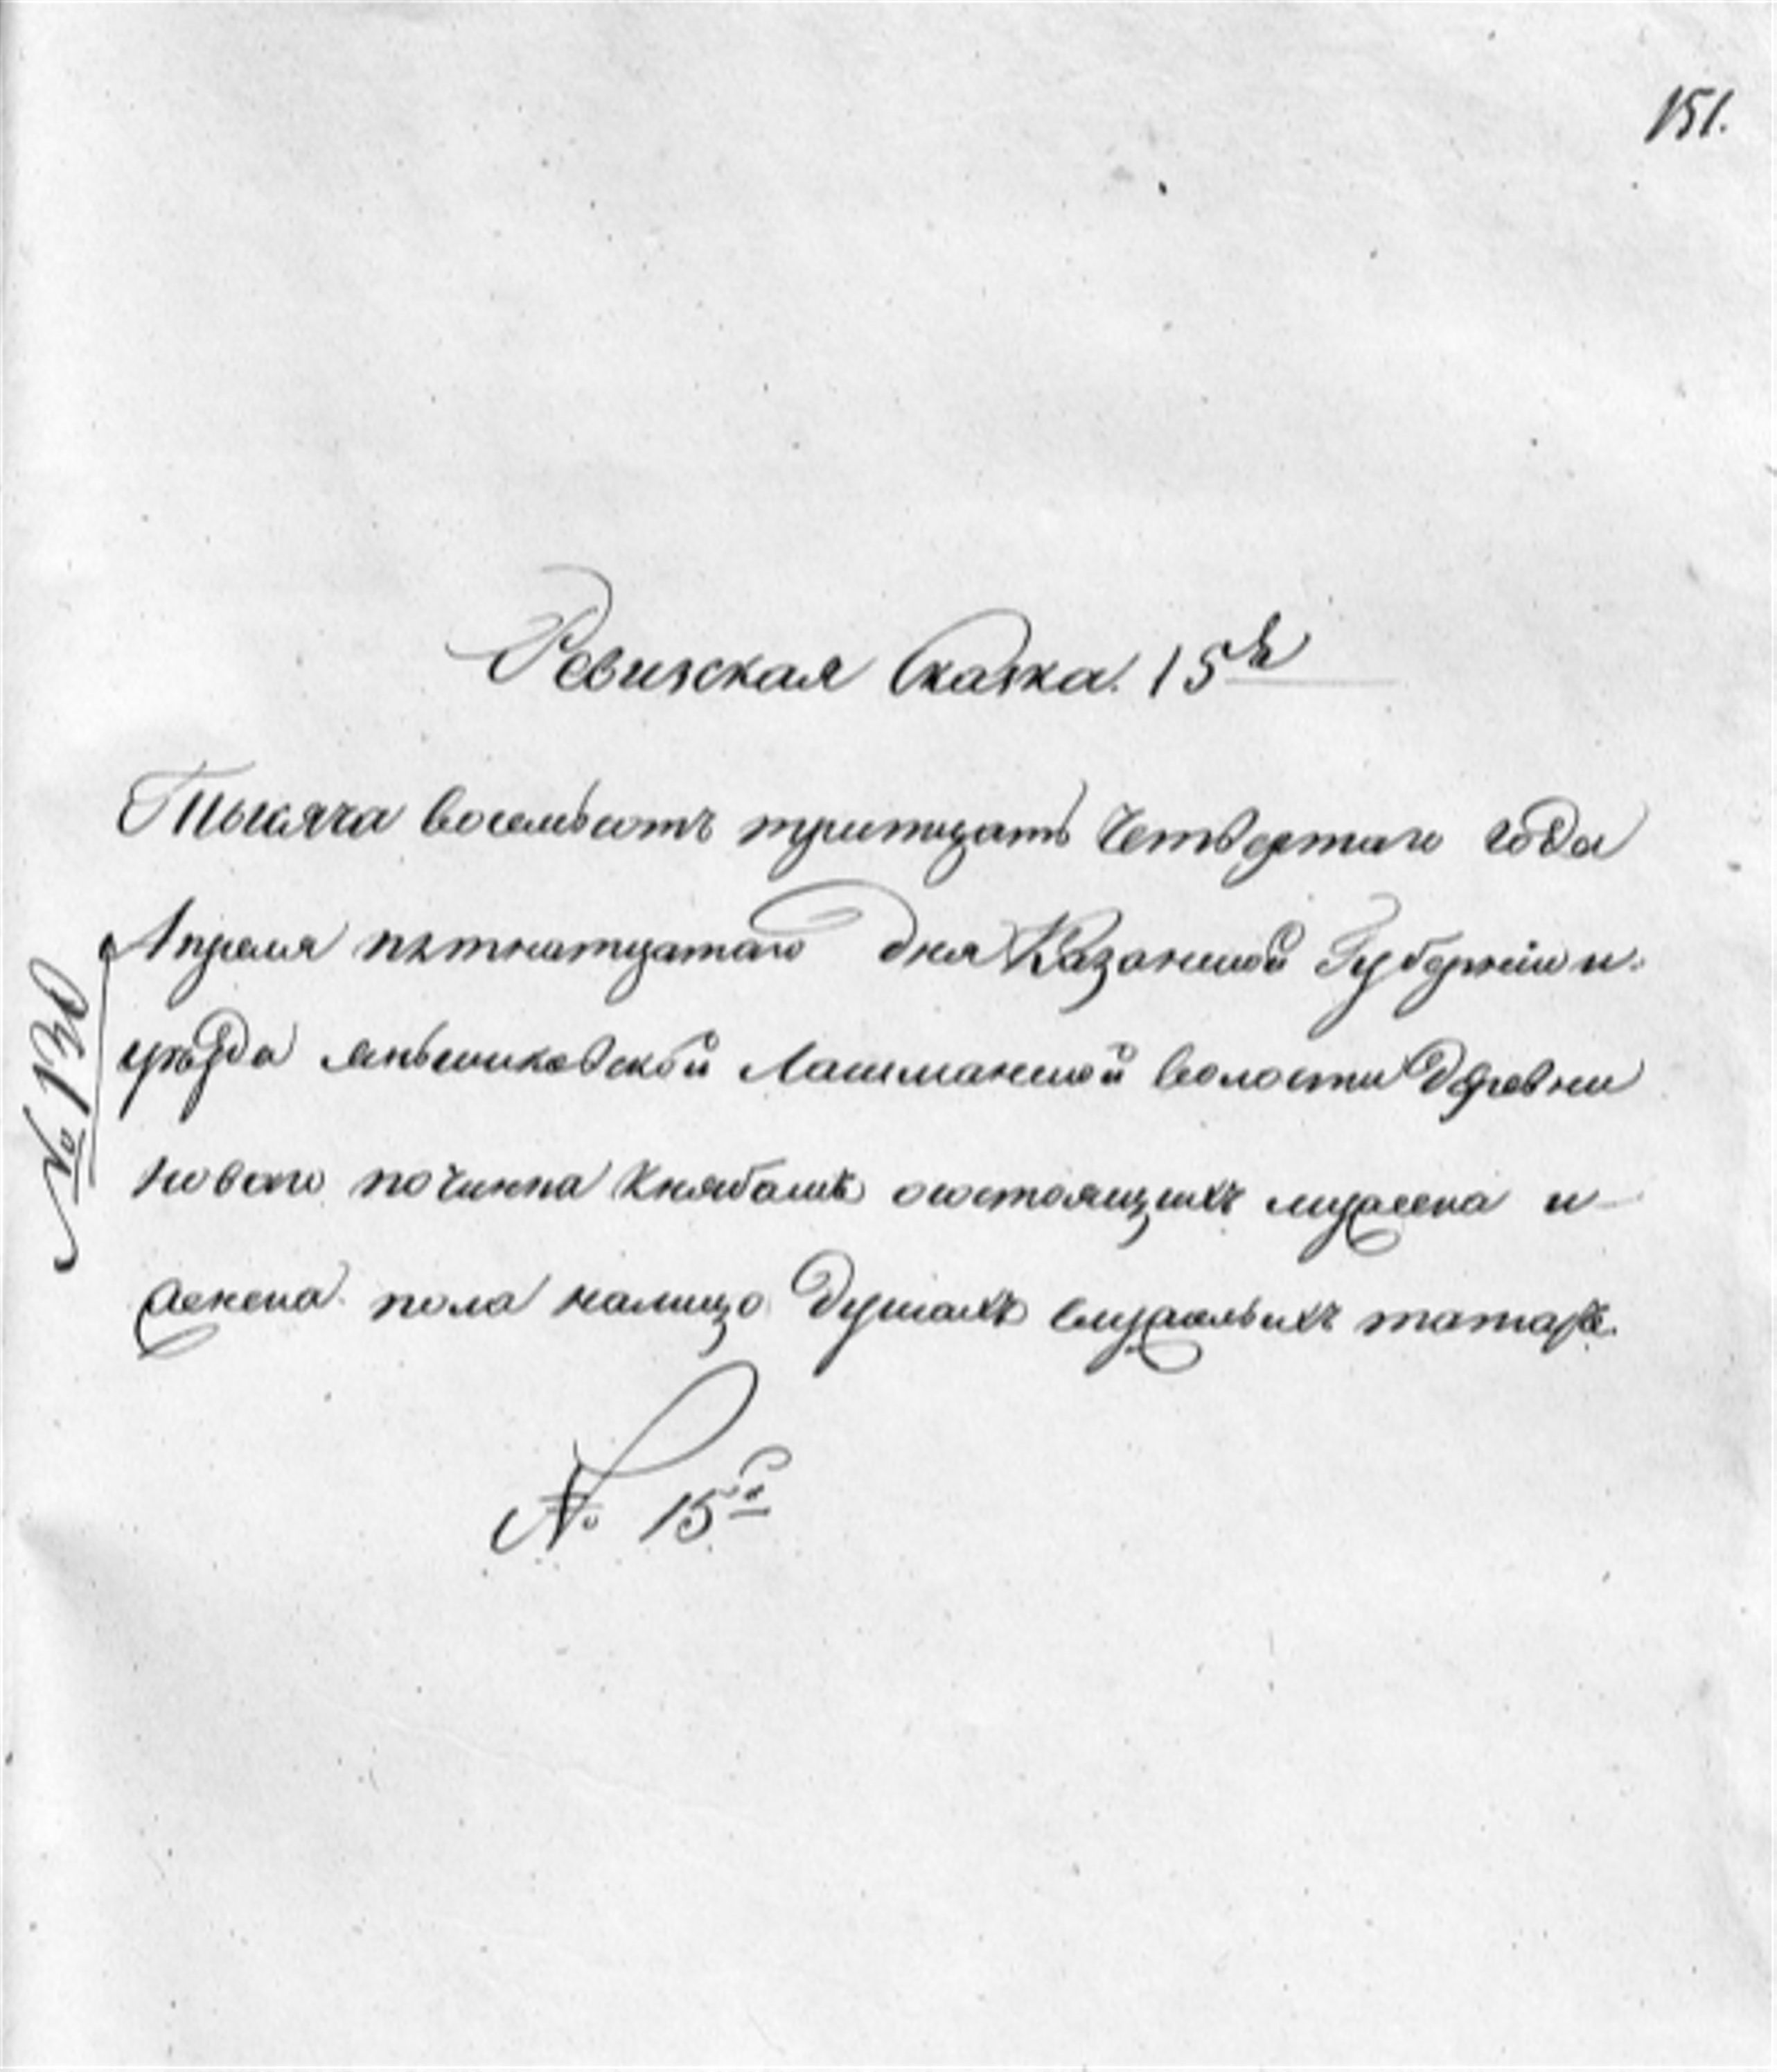 151.
Ревизская Сказка. 15я
Тысяча восемьсотъ тритцать Четвертаго года
Апреля пятнатцатаго дня Казанской Губернiи и
уѣзда яньшиковской Лашманской волости Деревни
новаго починка Князбашъ осостоящихъ мужеска и
женска пола налицо Душахъ служилыхъ татаръ.
№ 15й
№ 130